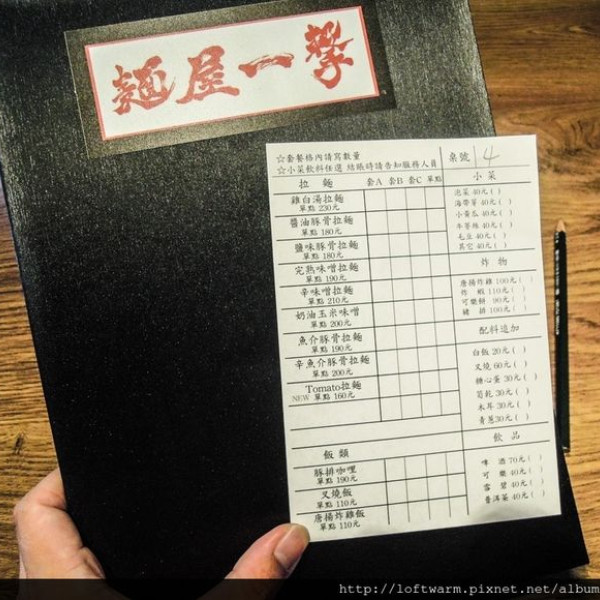 麵屋一撃
☆套餐格內請寫數量
☆小菜飲料任選 結賬時請告知服務人員
桌號 14
拉麵 套A 套B 套C 單點
雞白湯拉麵
單點 230元
醬油豚骨拉麵
單點 180元
鹽味豚骨拉麵
單點 180元
完熟味噌拉麵
單點 190元
辛味噌拉麵
單點 210元
奶油玉米味噌
單點 200元
魚介豚骨拉麵
單點 190元
辛魚介豚骨拉麵
單點 200元
Tomato拉麵
NEW 單點 160元
飯類
豚排咖哩
單點 190元
叉燒飯
單點 110元
唐揚炸雞飯
單點 110元
小菜
泡菜 40元( )
海帶芽 40元( )
小黃瓜 40元( )
牛蒡絲 40元( )
毛豆 40元( )
其它 40元( )
炸物
唐揚炸雞 100元( )
炸蝦 110元( )
可樂餅 90元( )
豬排 100元( )
配料追加
白飯 20元( )
叉燒 60元( )
糖心蛋 30元( )
筍乾 30元( )
木耳 30元( )
青蔥30元( )
飲品
啤酒 70元( )
可樂 40元( )
雪碧 40元( )
普洱茶 40元( )
http://loftwarm.pixnet.net/album